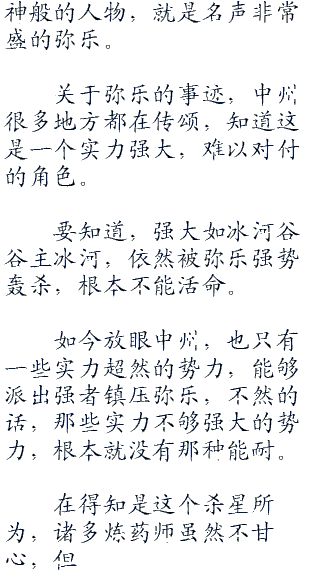 神般的人物，就是名声非常
盛的弥乐。
关于弥乐的事迹，中州
很多地方都在传颂，知道这
是一个实力强大，难以对付
的角色。
要知道，强大如冰河谷
谷主冰河，依然被弥乐强势
轰杀，根本不能活命。
如今放眼中州，也只有
一些实力超然的势力，能够
派出强者镇压弥乐，不然的
话，那些实力不够强大的势
力，根本就没有那种能耐。
在得知是这个杀星所
为，诸多炼药师虽然不甘
心，但